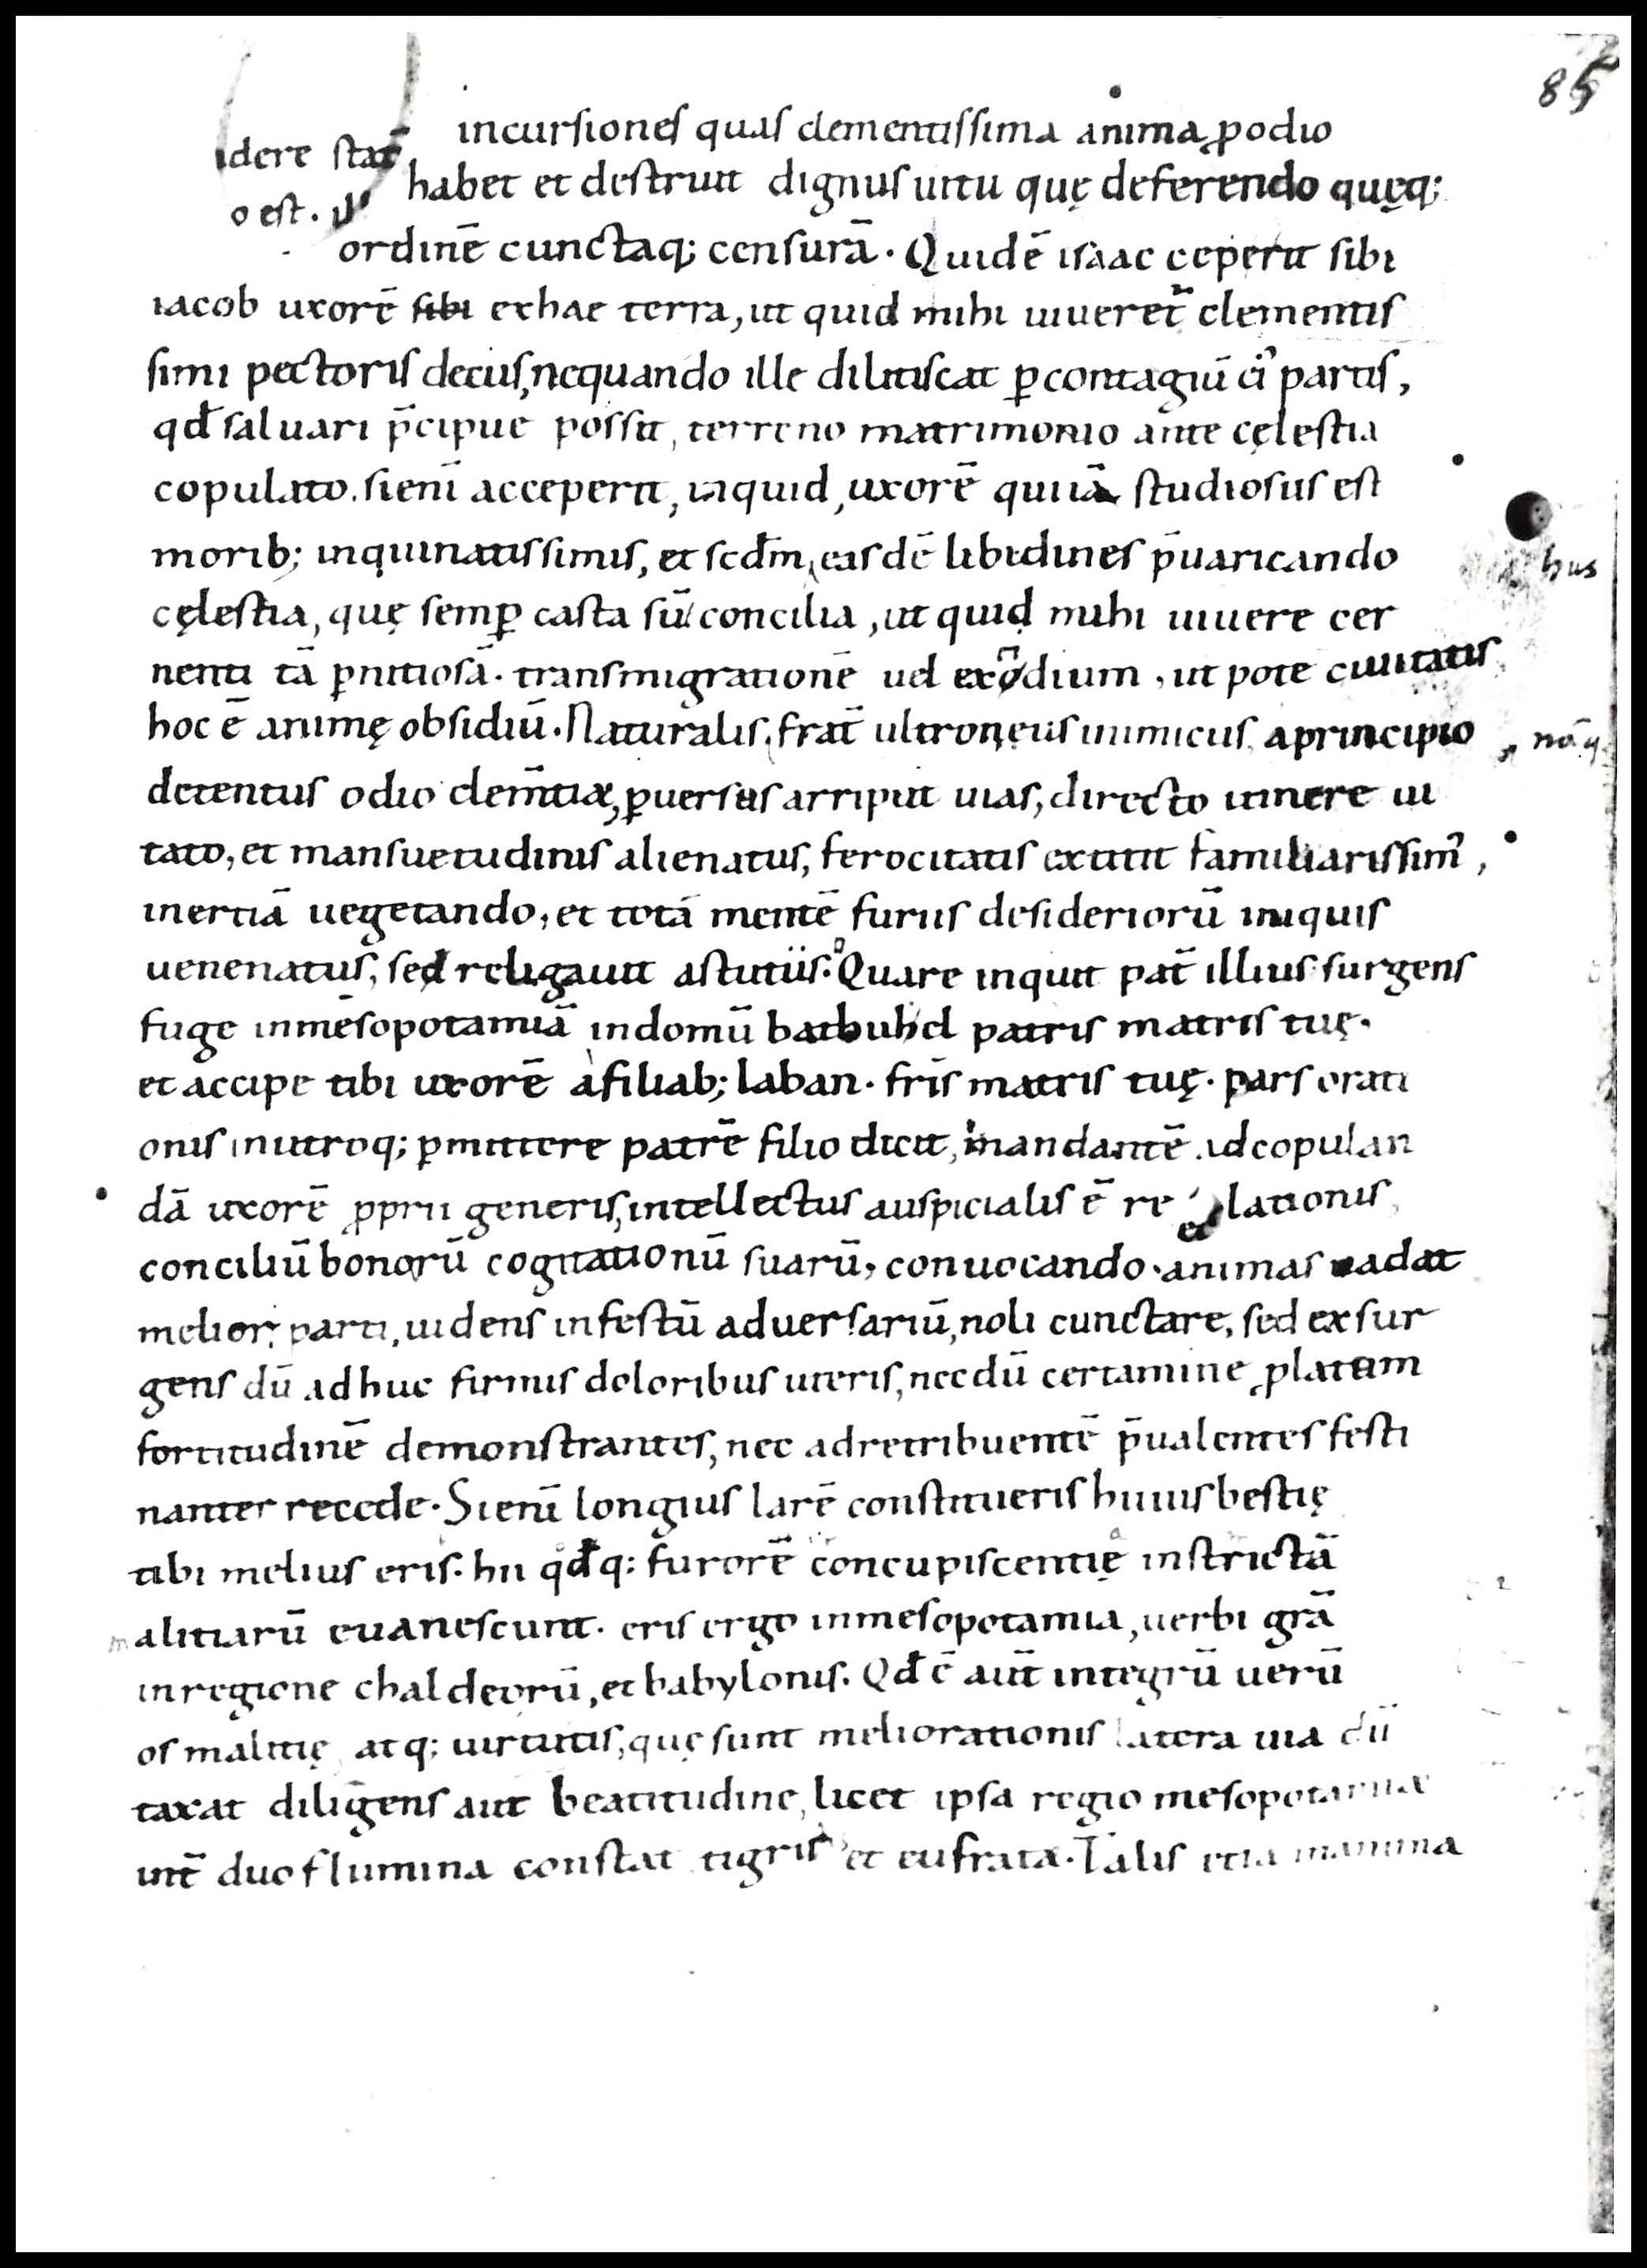 85
incursiones quas clementissima anima ꝓ odio
idere stat̄
habet et destruit dignus uitu quę deferendo quęq;
o est.
ordinē cunctaq; censurā. Quidē isaac ceperit sibi
iacob uxorē sibi exhac terra, ut quid mihi uiueret̄ clementis
simi pectoris decus, nequando ille dilitiscat ꝑ contagiū ci᷒ partis,
qđ saluari p̄cipue possit, terreno matrimonio ante cęlestia
copulato. sienī acceperit, inquid, uxorē quiuā studiosus est
morib; inquinatissimis, et scđm easdē libidines p̄uaricando
hus
cęlestia, quę semꝑ casta sū concilia, ut quid mihi uiuere cer
nenti tā ꝑnitiosā. transmigrationē uel exodium, ut pote ciuitatis
hoc ē animę obsidiū. Naturalis frat̄ ultroneus inimicus aprincipio
detentus odio clem̄tiæ, ꝑuersas arripuit uias, directo itinere ui
tato, et mansuetudinis alienatus, ferocitatis extitit familiarissim᷒,
inertiā uegetando, et totā mentē furiis desideriorū iniquis
uenenatus, sed religauit astutiis. Quare inquit pat̄ illius surgens
fuge inmesopotamiā indomū bathuhel patris matris tuę.
et accipe tibi uxorē afiliab; laban. fr̄is matris tuę. pars orati
onis inutroq; ꝑmittere patrē filio dicit, mandantē adcopulan
dā uxorē ꝓprii generis, intellectus auspicialis ē re lationis
conciliū bonorū cogitationū suarū, conuocando. animas uadat
meliori parti, uidens infestū aduersariū, noli cunctare, sed exsur
gens dū adhuc firmis doloribus uteris, necdū certamine ꝓlatam
fortitudinē demonstrantes, nec adretribuentē p̄ualentes festi
nanter recede. Sienī longius larē constitueris huius bestię
tibi melius eris. hii qđq; furorē concupiscentię instrictā
malitiarū euanescunt. eris ergo inmesopotamia, uerbi grā
inregione chaldeorū, et babylonis. Qđ ē aut̄ integrū uerū
os malitię atq; uirtutis, quę sunt meliorationis latera uia dū
taxat diligens aut beatitudine, licet ipsa regio mesopotamiæ
int̄ duo flumina constat tigris et eufrata. Talis etia manima